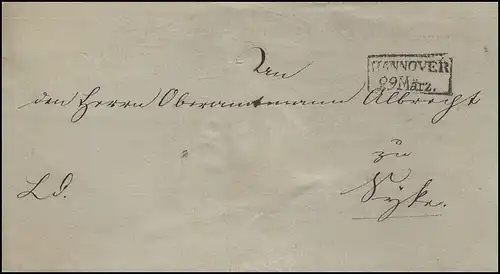 An
HANNOVER
29 März.
den Herrn Oberamtmann Albrecht
zu
Ld.
Syke.